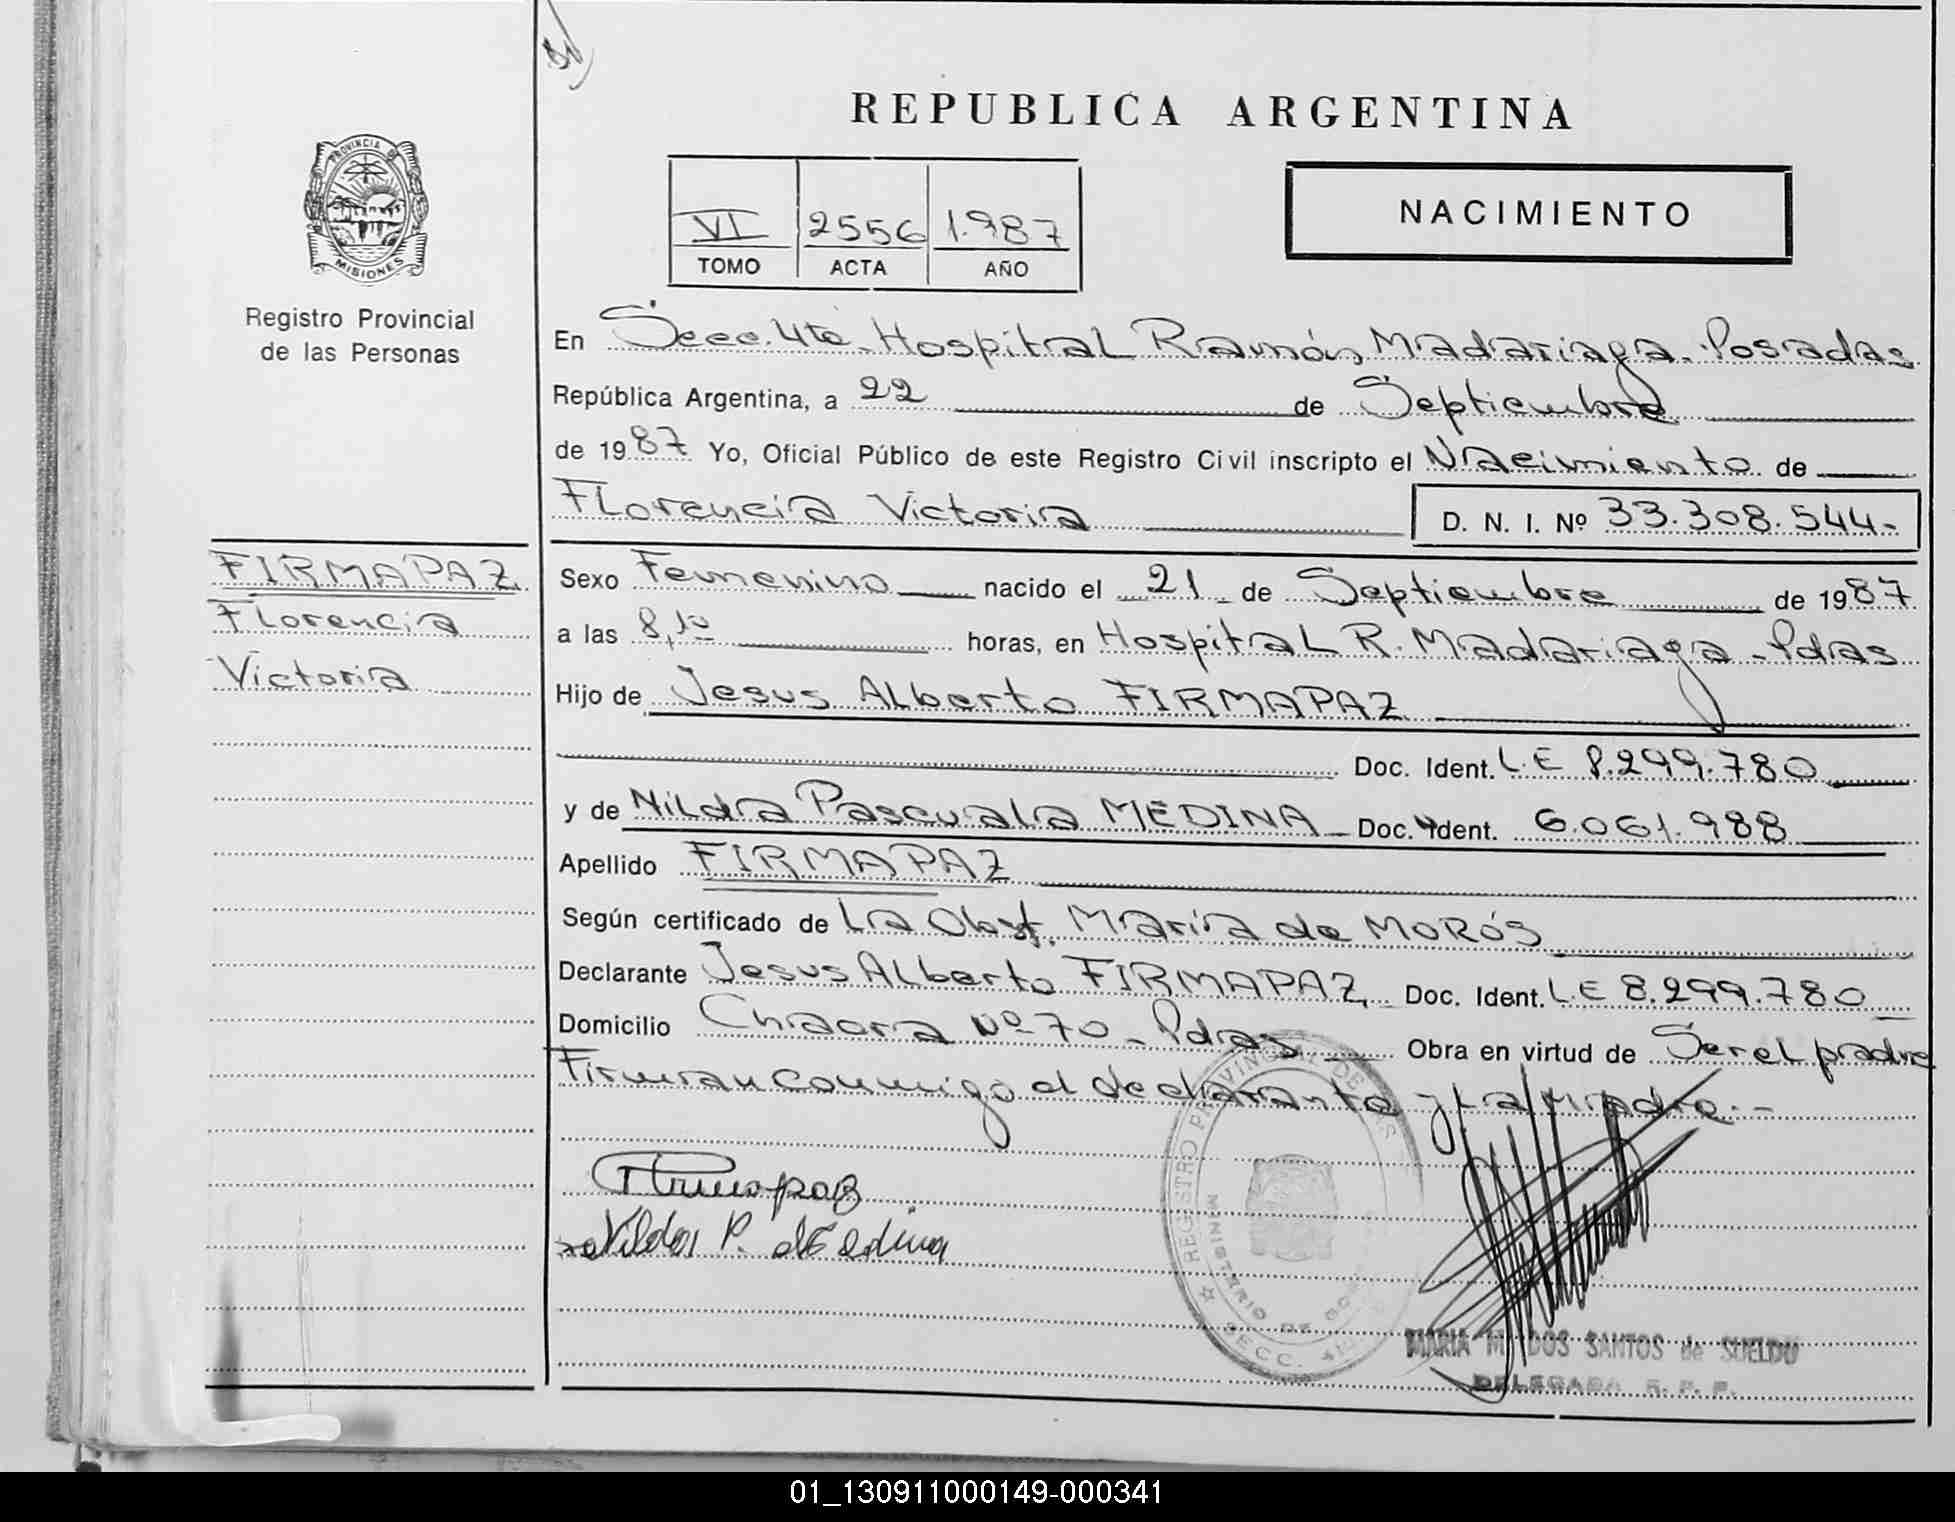 REPUBLICA ARGENTINA
PROVINCIA DE
MISIONES
Registro Provincial
de las Personas
VI 2556 1.987
TOMO ACTA AÑO
NACIMIENTO
En Secc. 4ta. Hospital Ramón Madariaga - Posadas
República Argentina, a 22 de Septiembre
de 1987 Yo, Oficial Público de este Registro Civil inscripto el Nacimiento de
Florencia Victoria D. N. I. Nº 33.308.544-
FIRMAPAZ
Florencia
Victoria
Sexo Femenino nacido el 21 de Septiembre de 1987
a las 8,10 horas, en Hospital R. Madariaga - Pdas
Hijo de Jesus Alberto FIRMAPAZ
Doc. Ident. L.E 8.299.780
y de Nilda Pascuala MEDINA Doc. Ident. 6.061.988
Apellido FIRMAPAZ
Según certificado de La Obst. María de MORÓS
Declarante Jesus Alberto FIRMAPAZ Doc. Ident. L.E 8.299.780
Domicilio Chacra Nº 70 - Pdas Obra en virtud de Ser el padre
Firman conmigo el declarante y La Madre.-
Firmapaz
Nilda P. de Medina
REGISTRO PROVINCIAL DE LAS
MINISTERIO DE
SECC. 4ta
MARIA M. DOS SANTOS de SUELDO
DELEGADA R. P. P.
01_130911000149-000341